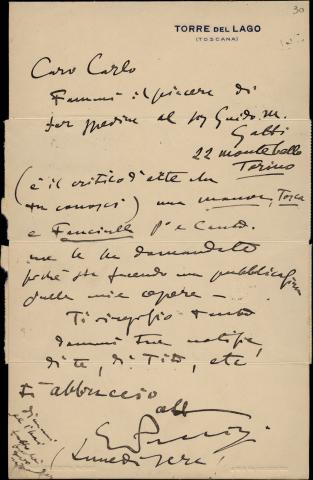 30
TORRE DEL LAGO
(TOSCANA)
Caro Carlo
Fammi il piacere di
far spedire al Sig Guido M.
Gatti
22 Montebello
Torino
(è il critico d'arte che
tu conosci) una Manon, Tosca
e Fanciulla p e canto.
me le ha domandate
poichè sta facendo una pubblicazione
sulle mie opere —
Ti ringrazio tanto
dammi tue notizie,
di te, di Tito, etc
Ti abbraccio
aff
GPuccini
(Lunedi sera)
dimmi